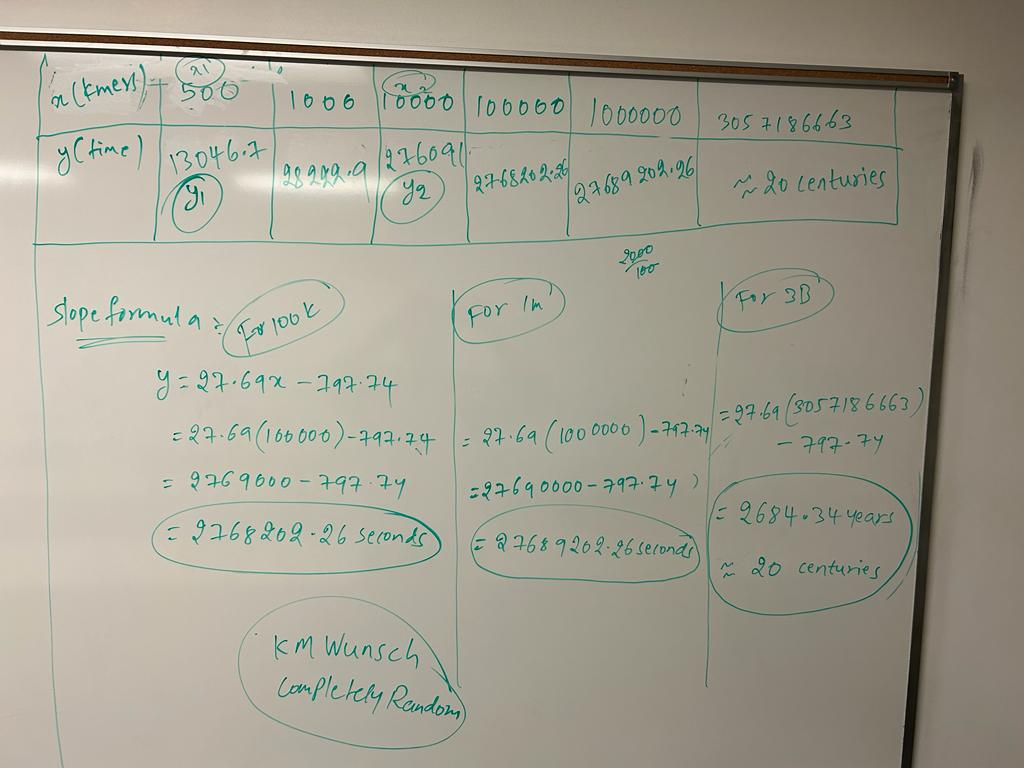 x(kmers) 500 x1 1000 10000 x2 100000 1000000 3057186663
y(time) 13046.7 y1 28222.9 276091 y2 2768202.26 27689202.26 ≈ 20 centuries
2000/100
Slope formula: For 100k
y = 27.69x - 797.74
= 27.69(100000) - 797.74
= 2769000 - 797.74
= 2768202.26 seconds
For 1m
= 27.69(1000000) - 797.74
= 27690000 - 797.74
= 27689202.26 seconds
For 3B
= 27.69(3057186663)
- 797.74
= 2684.34 years
≈ 20 centuries
KM Wunsch
Completely Random